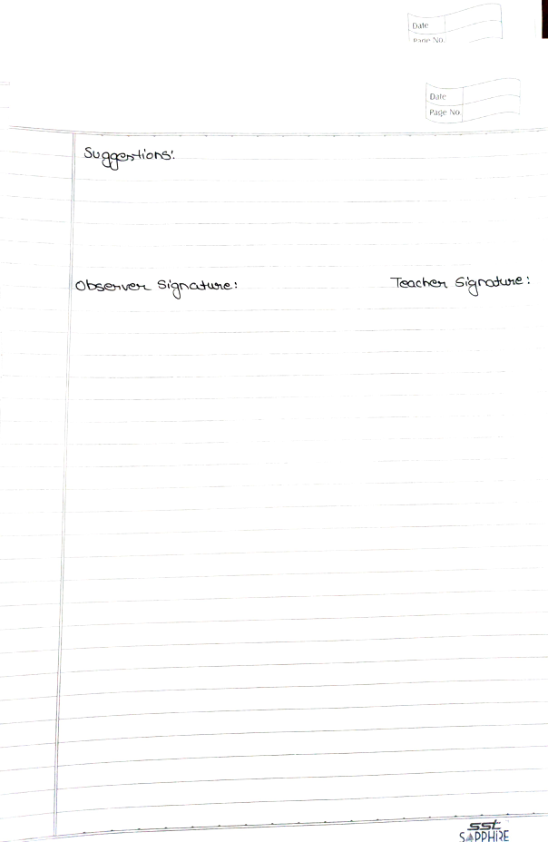 Date
Page No.
Date
Page No
Suggestions:
Observer Signature:
Teacher Signature:
sst
SAPPHIRE